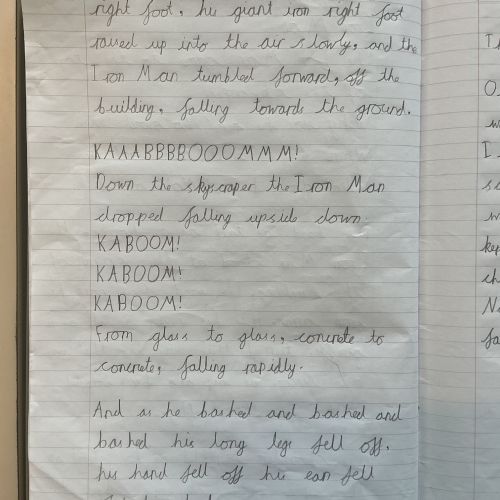 right foot, his giant iron right foot
raised up into the air slowly, and the
Iron Man tumbled forward, off the
building, falling towards the ground.
KAAABBBBOOOMMM!
Down the skyscraper the Iron Man
dropped falling upside down.
KABOOM!
KABOOM!
KABOOM!
From glass to glass, concrete to
concrete, falling rapidly.
And as he bashed and bashed and
bashed his long legs fell off.
his hand fell off his ear fell